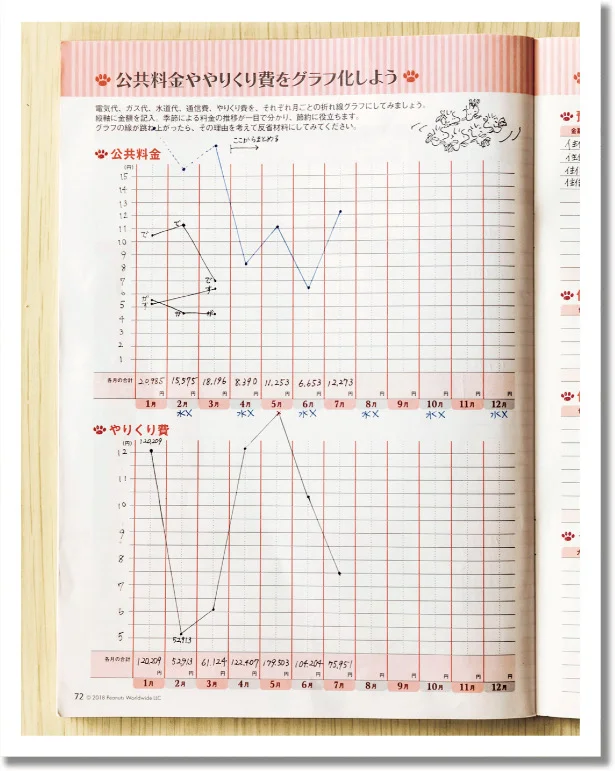 公共料金ややりくり費をグラフ化しよう
電気代、ガス代、水道代、通信費、やりくり費を、それぞれ月ごとの折れ線グラフにしてみましょう。
縦軸に金額を記入。季節による料金の推移が一目で分かり、節約に役立ちます。
グラフの線が跳ね上がったら、その理由を考えて反省材料にしてみてください。
ここからまとめる
公共料金
(円)
15
14
13
12
11
10
9
8
7
6
5
4
3
2
1
で で で
す す
が が が
各月の合計 20,985 15,575 18,196 8,390 11,253 6,653 12,273
円 円 円 円 円 円 円 円 円 円 円 円
1月 2月 3月 4月 5月 6月 7月 8月 9月 10月 11月 12月
水X 水X 水X 水X 水X 水X
やりくり費
(円)
120,209
12
11
10
9
8
7
6
5
52,913
各月の合計 120,209 52,913 61,124 122,407 179,503 104,204 75,951
円 円 円 円 円 円 円 円 円 円 円 円
1月 2月 3月 4月 5月 6月 7月 8月 9月 10月 11月 12月
72 © 2018 Peanuts Worldwide LLC